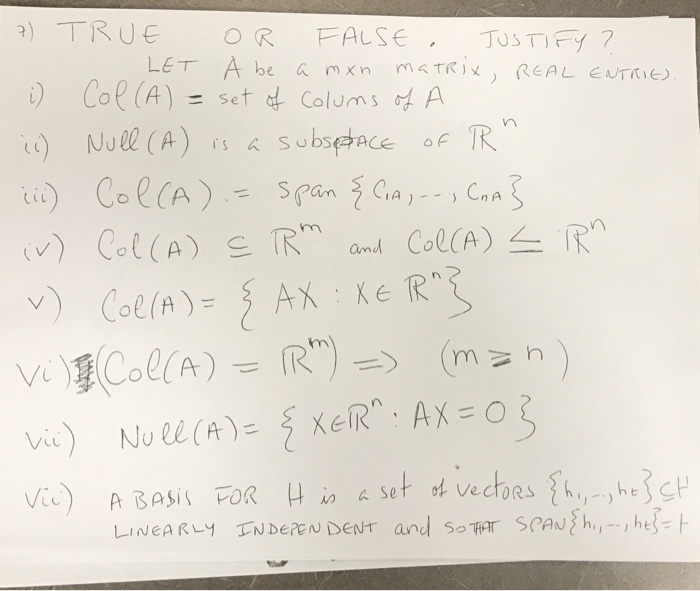 7) TRUE OR FALSE. JUSTIFY?
LET A be a mxn matrix, REAL ENTRIES
i) Col(A) = set of Colums of A
ii) Null(A) is a subspace OF ℝⁿ
iii) Col(A) = Span {C₁A, --, CₙA}
iv) Col(A) ⊆ ℝᵐ and Col(A) ≤ ℝⁿ
v) Col(A) = { AX : X∈ℝⁿ}
vi) (Col(A) = ℝᵐ) => (m ≥ n)
vii) Null(A) = { X∈ℝⁿ : AX = 0 }
vii) A BASIS FOR H is a set of vectors {h₁, --, ht} ⊆ H
LINEARLY INDEPENDENT and so THAT SPAN{h₁, --, ht} = H